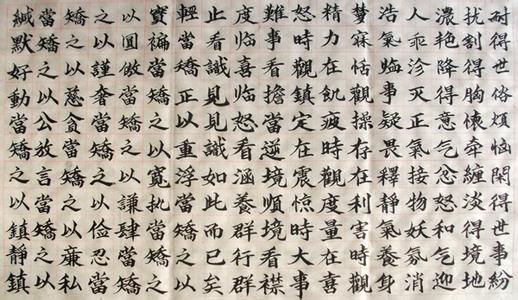 耐得世俗煩恼閑得世事紛
扰割得胸懷牽纏淡得境地
濃艳降得意气忿怒和气迎
人乖沴灭正气接物妖氛消
浩氣臨事疑畏釋靜氣養身
夢寐恬觀操存在利害時觀
精力在飢疲時觀度量在喜
怒時觀鎮定在震惊時大事
難事看擔當逆境順境看襟
度临喜临怒看涵養群行群
止看識見見識如此而已矣
輕當矯之以重浮當矯之以
實褊當矯之以寬执當矯之
以圓傲當矯之以謙肆當矯
之以謹奢當矯之以俭忍當
矯之以慈貪當矯之以廉私
當矯之以公放言當矯之以
緘默好動當矯之以鎮靜鎮